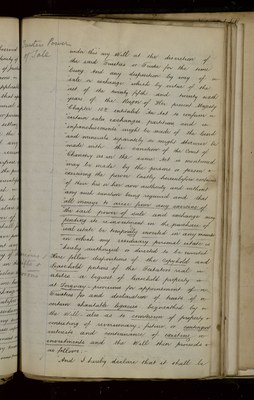 Trustees Power
of Sale
under this my Will at the discretion of
the said Trustees or Trustee for the time
being and any disposition by way of
sale or exchange which by virtue of the
act of the twenty fifth and twenty sixth
years of the Reign of Her present Majesty
Chapter 108 entitled An Act to confirm
certain sales exchanges partitions and
enfranchisements might be made of the land
and minerals separately or might thereout be
made with the sanction of the Court of
Chancery as in the same Act is mentioned
may be made by the person or persons
exercising the power lastly hereinbefore contained
of their his or her own authority and without
any such sanction being required and that
all moneys to arise from any exercise of
the said power of sale and exchange may
pending its reinvestment in the purchase of
real estate be temporarily invested in any mode
in which my residuary personal estate is
hereby authorized or directed to be invested
Then follow dispositions of the copyhold and
leasehold portions of the Testators real
estates a bequest of leasehold property
at Torquay provisions for appointment of
trustees for and declaration of trusts of
certain charitable legacies bequeathed by
the Will also as to investment of property
consisting of reversionary future or contingent
interests and maintenance of
and the Will then proceeds
as follows
And I hereby declare that it shall be